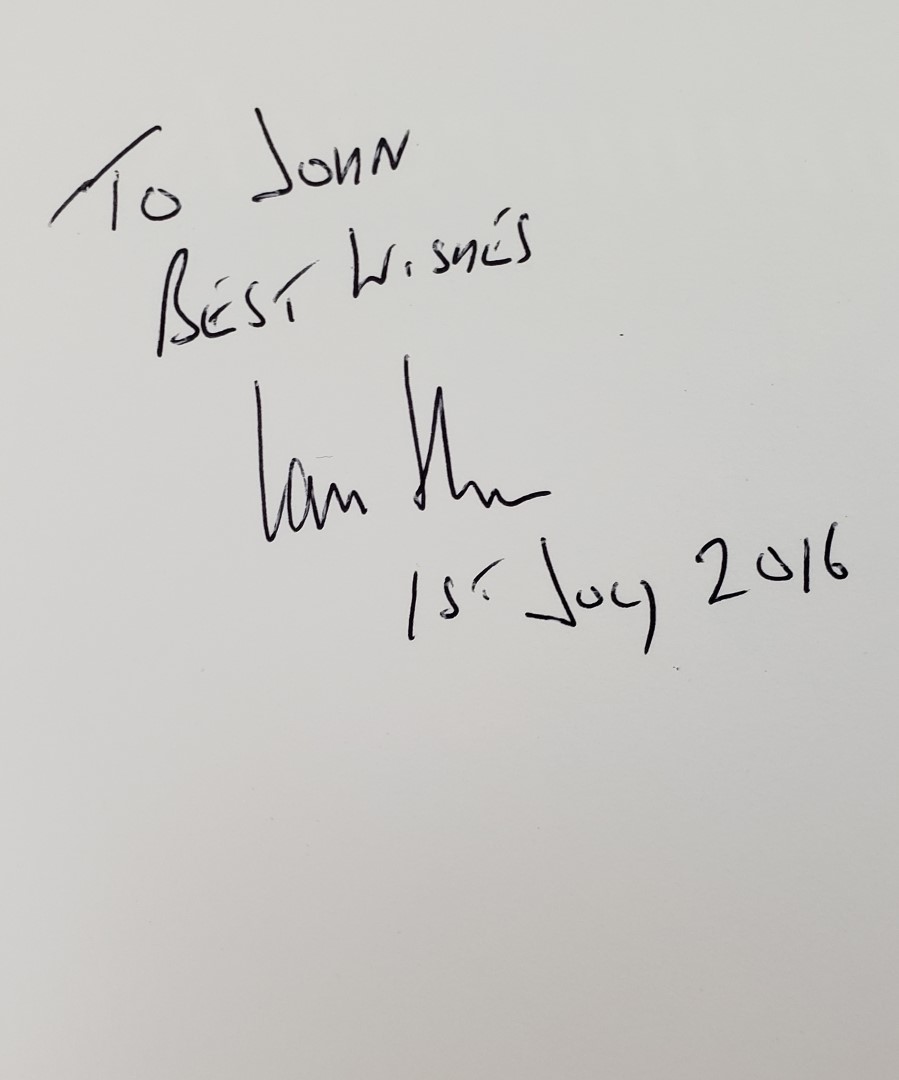 To JOHN
BEST WISHES
Iain
1ST JULY 2016